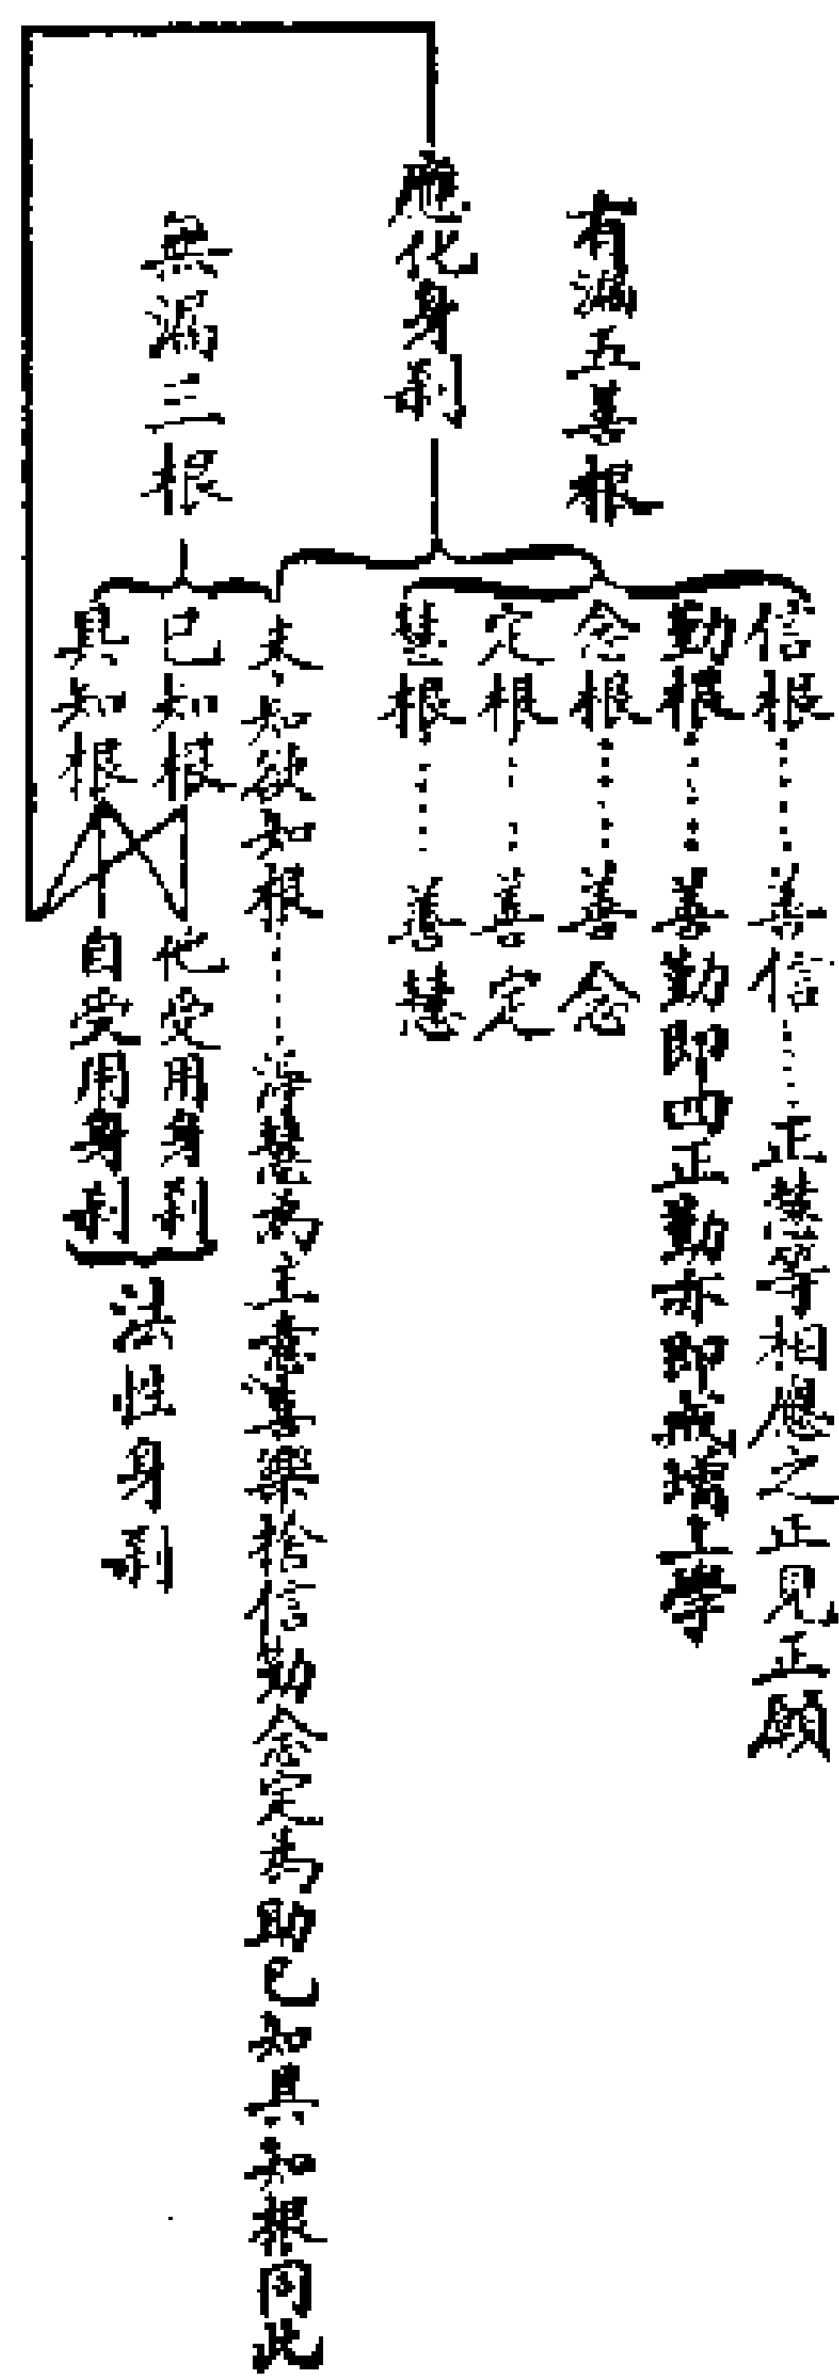 有漏五善根
信根……善信……正業等相應之正見正願
勤根……善勤即四正勤亦即戒增上學
念根……善念
定根……善定
慧根……善慧
應化身剎
無漏三根
未知欲知根……淨慧為主意喜樂捨信勤念定為助已知具知根同此
已知根
具知根
他受用身剎
自受用身剎
法性身剎